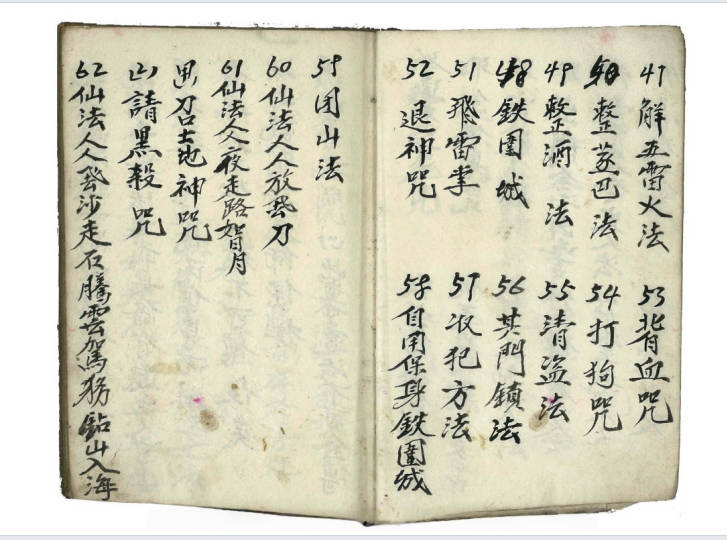 47 解五雷火法
整巴法
49 整酒法
鉄圍城
51 飛雷掌
52 退神咒
53 背血咒
54 打狗咒
55 清盗法
56 其門鎖法
57 收犯方法
58 自用保身鉄圍城
59 团山法
60 仙法人人放飛刀
61 仙法人人夜走路如日月
召土地神咒
山請黑殺咒
62 仙法人人飛沙走石騰雲駕務鉆山入海